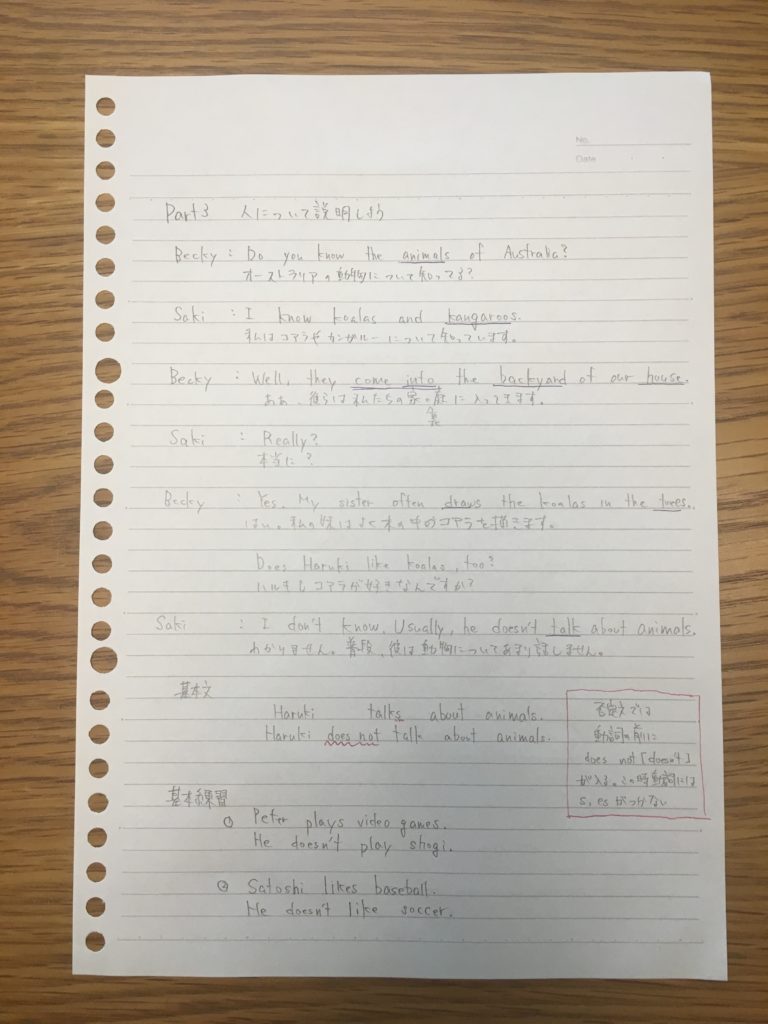 No.
Date
Part3 人について説明しよう
Becky : Do you know the animals of Australia?
オーストラリアの動物について知ってる?
Saki : I know koalas and kangaroos.
私はコアラやカンガルーについて知っています。
Becky : Well, they come into the backyard of our house.
ああ、彼らは私たちの家の庭に入ってきます。
裏
Saki : Really?
本当に?
Becky : Yes. My sister often draws the koalas in the trees.
はい。私の妹はよく木の中のコアラを描きます。
Does Haruki like koalas, too?
ハルキもコアラが好きなんですか?
Saki : I don't know. Usually, he doesn't talk about animals.
わかりません。普段、彼は動物についてあまり話しません。
基本文
Haruki talks about animals.
Haruki does not talk about animals.
否定文では
動詞の前に
does not [doesn't]
が入る。この時動詞には
s, esがつかない
基本練習
① Peter plays video games.
He doesn't play shogi.
② Satoshi likes baseball.
He doesn't like soccer.